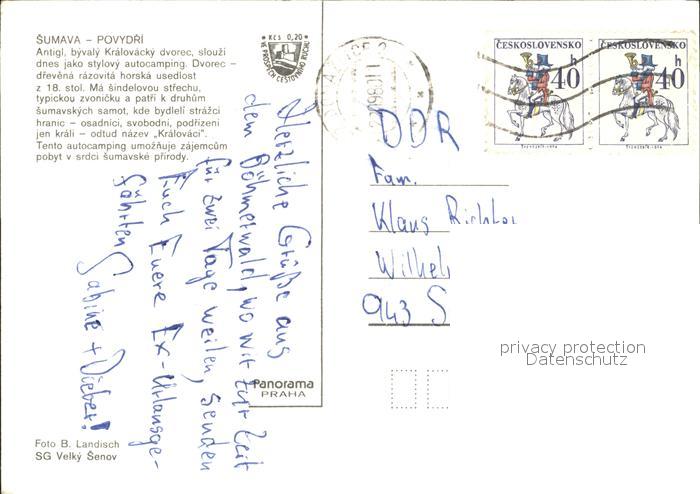 ŠUMAVA – POVYDŘÍ
Antigl, bývalý Královácký dvorec, slouží
dnes jako stylový autocamping. Dvorec –
dřevěná rázovitá horská usedlost
z 18. stol. Má šindelovou střechu,
typickou zvoničku a patří k druhům
šumavských samot, kde bydleli strážci
hranic – osadníci, svobodní, podřízení
jen králi – odtud název „Králováci".
Tento autocamping umožňuje zájemcům
pobyt v srdci šumavské přírody.
Kčs 0,20
VE PROSPĚCH CESTOVNÍHO RUCHU
Herzliche Grüße aus
dem Böhmerwald, wo wir zur Zeit
für zwei Tage weilen, senden
Euch Euere Ex-Urlausge-
fährten Sabine + Dieter!
Panorama
PRAHA
Foto B. Landisch
SG Velký Šenov
ČESKOSLOVENSKO
40 h
ČESKOSLOVENSKO
40 h
DDR
Fam.
Klaus Richter
Wilh
943 S
privacy protection
Datenschutz